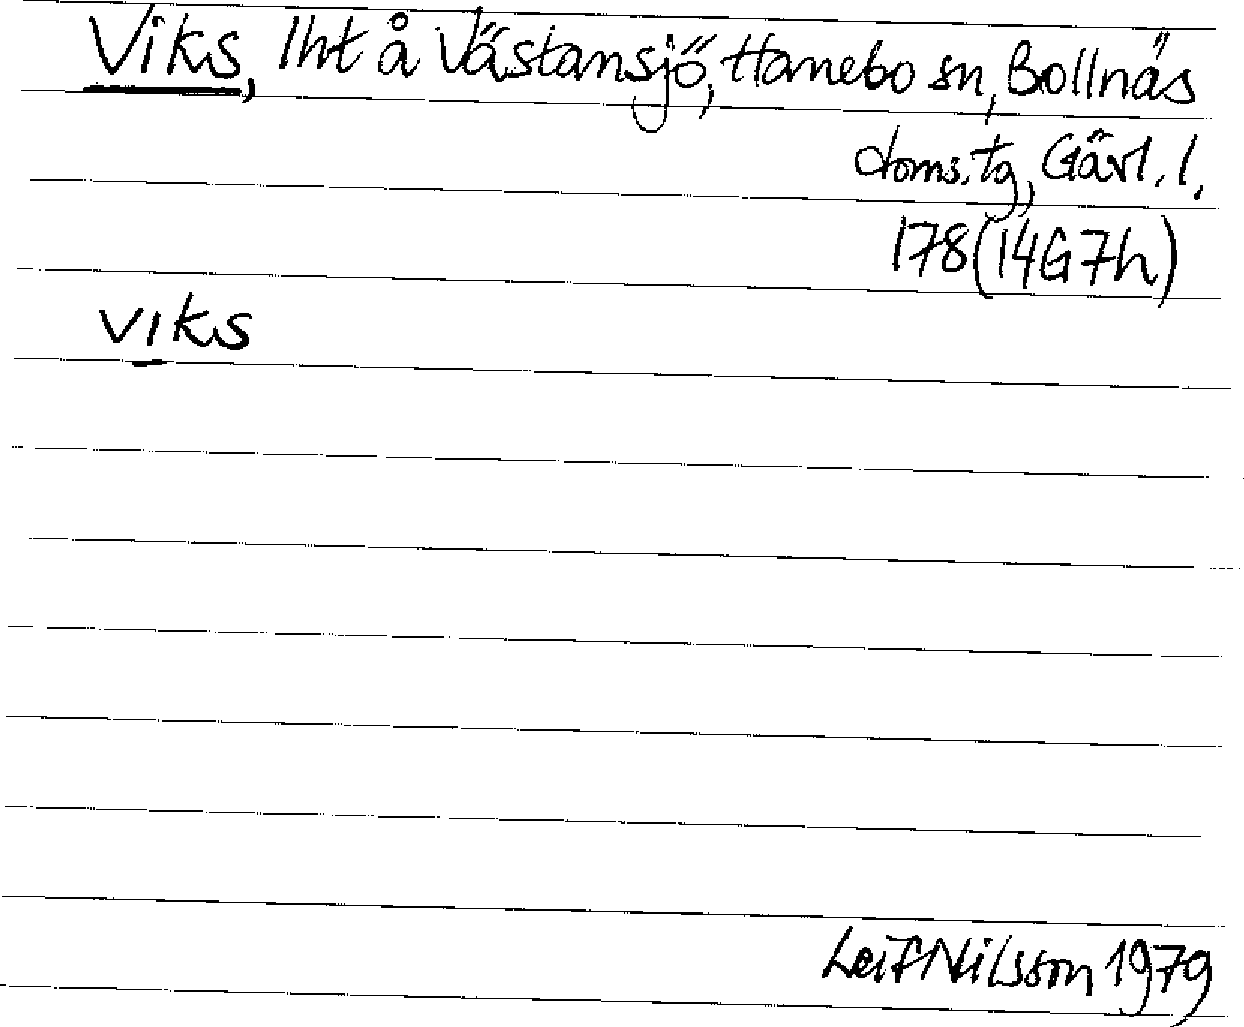 Viks, lht å Västansjö, Hanebo sn, Bollnäs
doms.tg, Gävl. l.
178 (14G7h)
viks
Leif Nilsson 1979